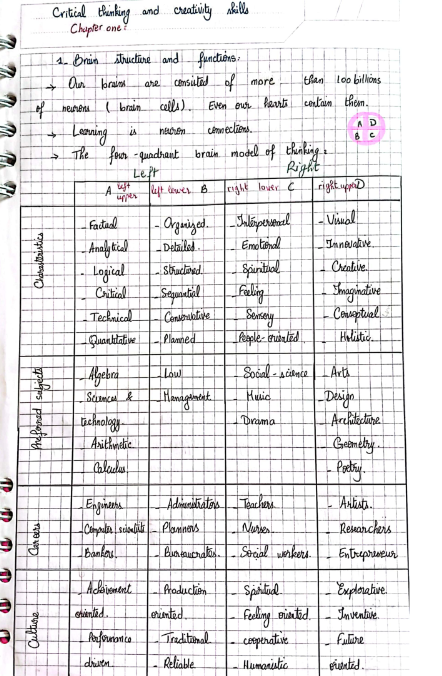 Critical thinking and creativity skills
Chapter one:
1- Brain structure and functions:
→ Our brains are consisted of more than 100 billions
of neurons ( brain cells). Even our hearts contain them.
→ Learning is neuron connections.
A D
B C
→ The four-quadrant brain model of thinking:
Left Right
A left upper left lower B right lower C right upper D
Characteristics
- Factual - Organized. - Interpersonal - Visual
- Analytical - Detailed. - Emotional - Innovative.
- Logical - Structured. - Spiritual - Creative.
- Critical - Sequential - Feeling - Imaginative
- Technical - Conservative - Sensory - Conseptual
- Quantitative - Planned - People-oriented. - Holistic.
Preferred subjects
- Algebra - Law - Social-science - Arts
- Sciences & - Management. - Music - Design
technology. - Drama - Architecture
- Arithmetic - Geometry.
- Calculus. - Poetry.
Careers
- Engineers - Administrators - Teachers. - Artists.
- Computer scientists - Planners - Nurses. - Researchers
- Bankers. - Bureaucrates. - Social workers. - Entrepreneur
Culture
- Achievement - Production - Spiritial - Explorative.
oriented. oriented. - Feeling oriented. - Inventive.
- Performance - Traditional - cooperative - Future
driven - Reliable - Humanistic oriented.